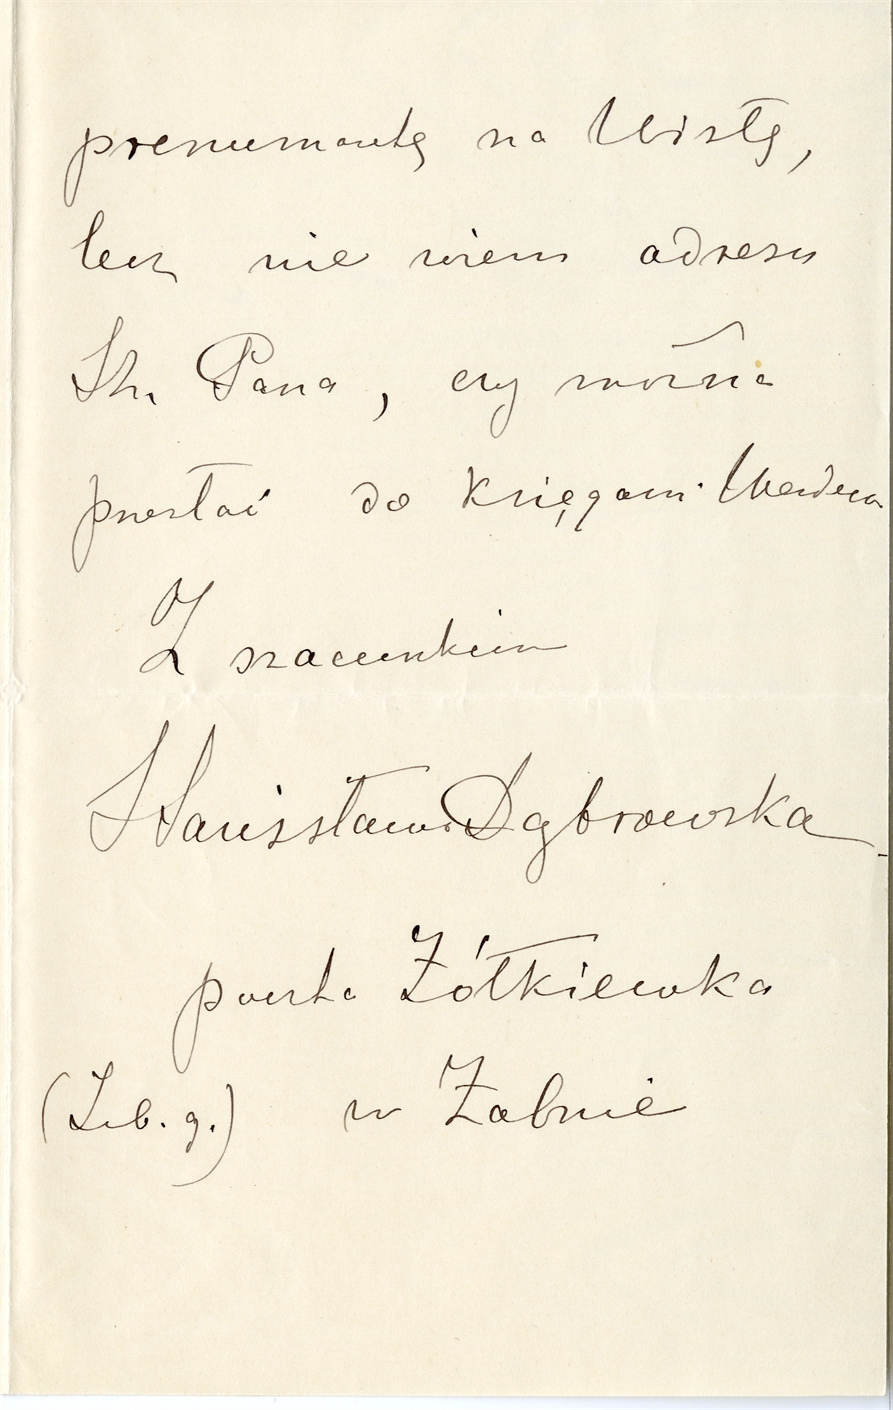 prenumeratę na Wisłę,
lecz nie wiem adresu
Sz. Pana, czy można
przesłać do księgarni Wendego
Z szacunkiem
Stanisława Dąbrowska
poczta Żółkiewka
(Lub. g.) w Żabnie